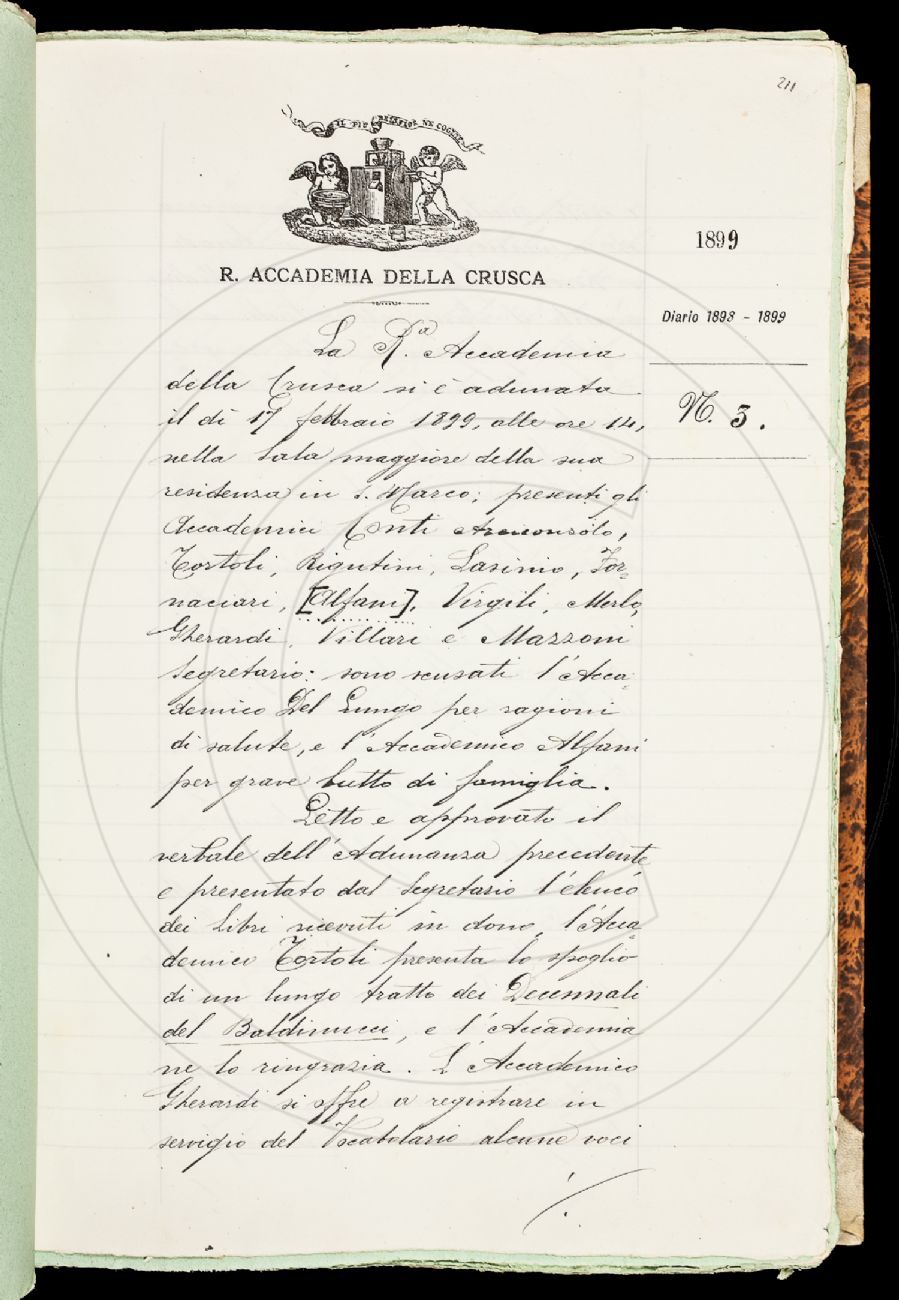 211
IL PIÙ BEL FIOR NE COGLIE
R. ACCADEMIA DELLA CRUSCA
1899
Diario 1898 - 1899
N. 3.
La R.ª Accademia
della Crusca si è adunata
il dì 17 febbraio 1899, alle ore 14,
nella Sala maggiore della sua
residenza in S. Marco; presenti gli
Accademici Conti Arciconsolo,
Tortoli, Rigutini, Lasinio, For=
naciari, [Alfani], Virgili, Merlo,
Gherardi, Villari e Mazzoni
Segretario: sono scusati l'Acca=
demico Del Lungo per ragioni
di salute, e l'Accademico Alfani
per grave lutto di famiglia.
Letto e approvato il
verbale dell'Adunanza precedente
e presentato dal Segretario l'elenco
dei libri ricevuti in dono, l'Acca=
demico Tortoli presenta lo spoglio
di un lungo tratto dei Decennali
del Baldinucci, e l'Accademia
ne lo ringrazia. L'Accademico
Gherardi si offre a registrare in
servigio del Vocabolario alcune voci
./.